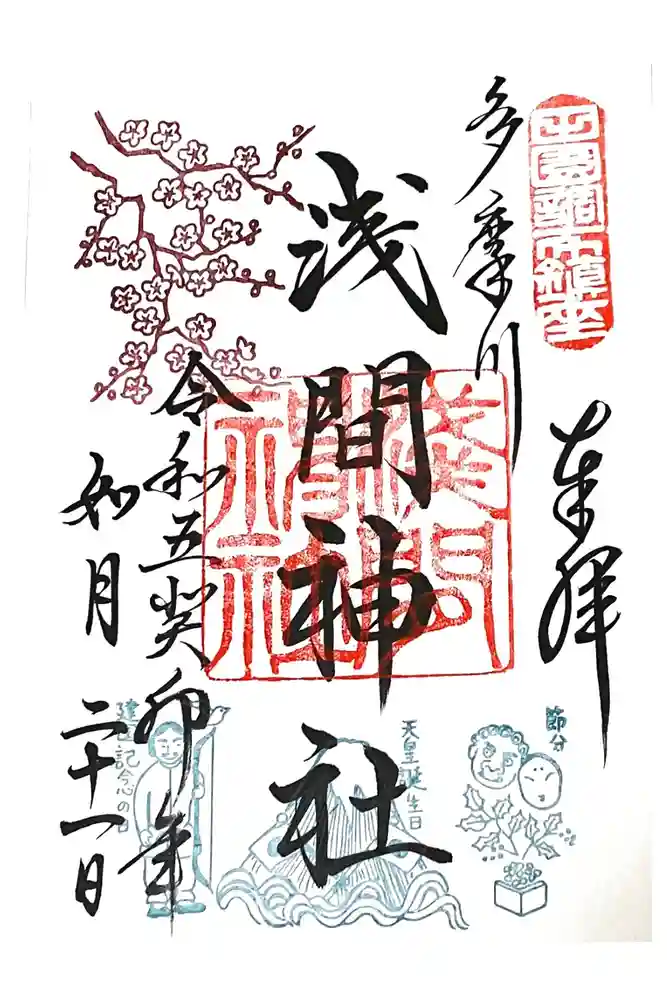 奉拝
多摩川
浅間神社
令和五癸卯年
如月
二十一日
節分
天皇誕生日
建国記念の日
浅間
神社